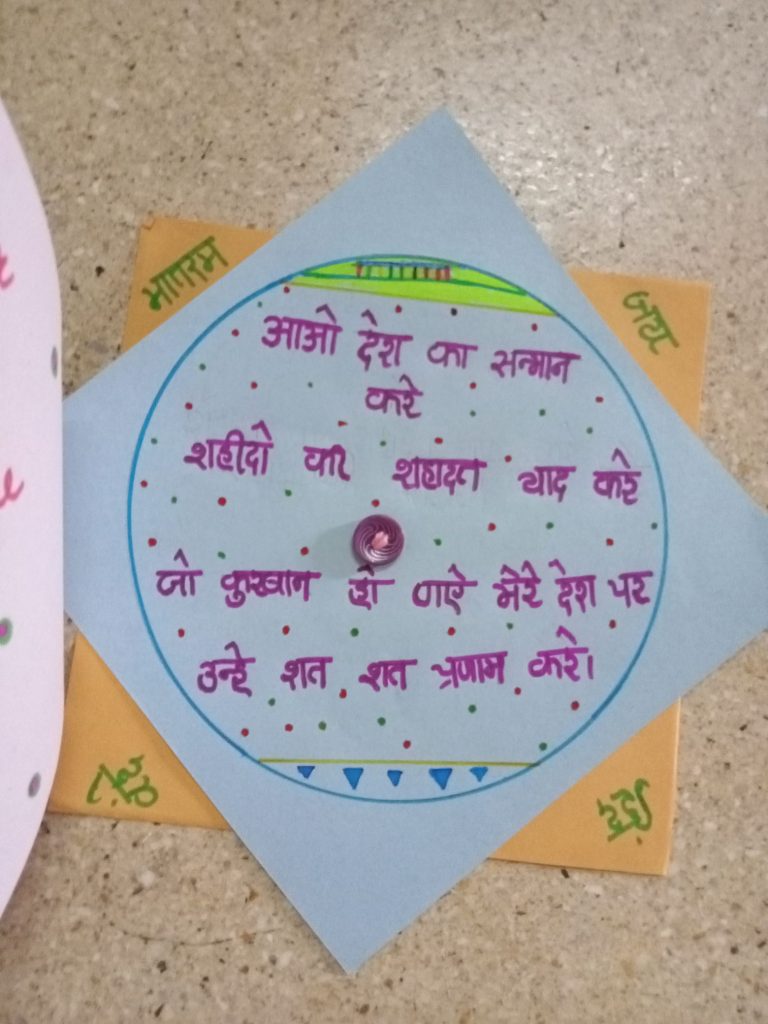 आओ देश का सन्मान
करे
शहीदो की शहादत याद करे
जो कुरबान हो गऐ मेरे देश पर
उन्हे शत शत प्रणाम करे।
जय